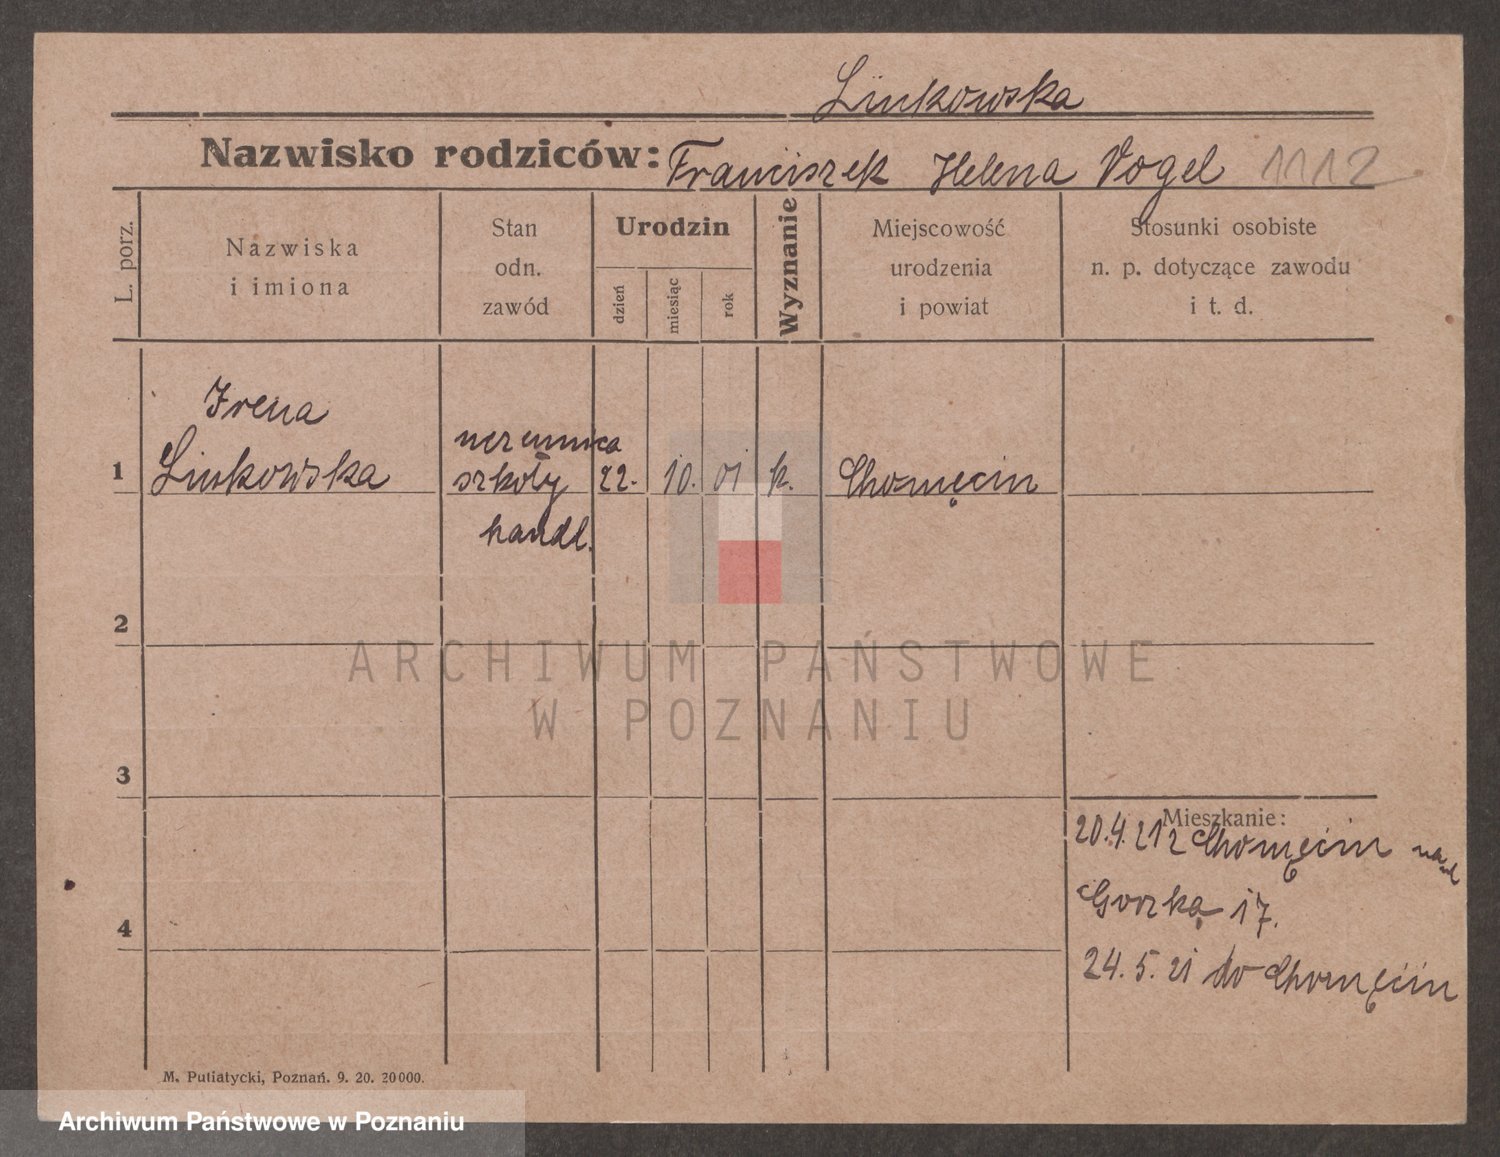 Linkowska
Nazwisko rodziców: Franciszek Helena Vogel 1112
L. porz.
Nazwiska
i imiona
Stan
odn.
zawód
Urodzin
dzień
miesiąc
rok
Wyznanie
Miejscowość
urodzenia
i powiat
Stosunki osobiste
n. p. dotyczące zawodu
i t. d.
1
Irena
Linkowska
uczennica
szkoły
handl.
22. 10. 01 k. Chomęcin
2
3
4
Mieszkanie:
20.4.21 z Chomęcin
Gorzką 17.
24. 5. 21 do Chomęcin
M. Putiatycki, Poznań. 9. 20. 20000.
ARCHIWUM PAŃSTWOWE
W POZNANIU
Archiwum Państwowe w Poznaniu